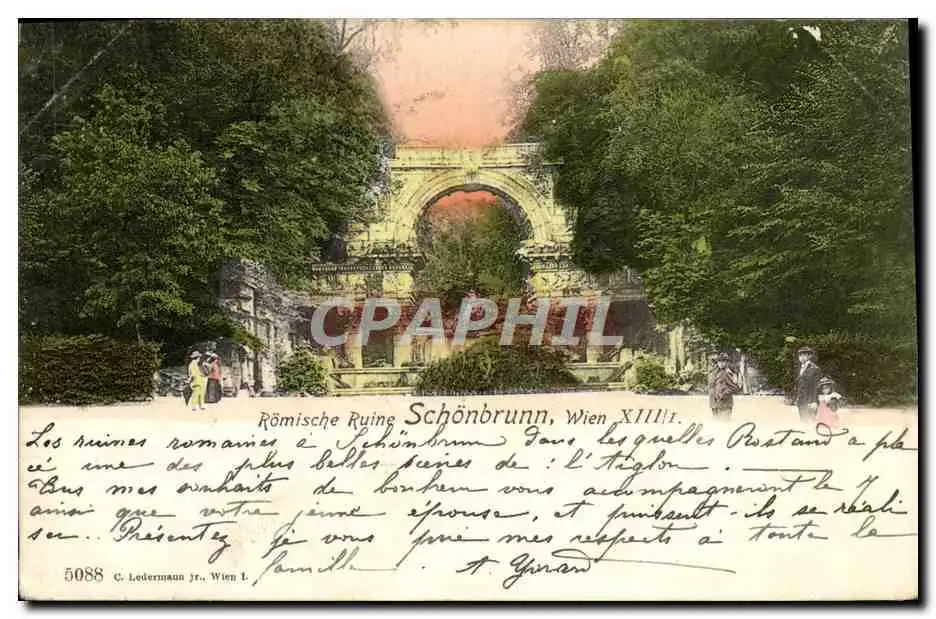 CPAPHIL
Römische Ruine Schönbrunn, Wien XIII/1.
Les ruines romaines à Schönbrunn dans lesquelles Rostand a pla
cé une des plus belles scènes de : l'Aiglon.
Tous mes souhaits de bonheur vous accompagneront le 7
ainsi que votre jeune épouse, et puissent-ils se réali
ser. Présentez, je vous prie mes respects à toute la
famille.
5088 C. Ledermann jr., Wien I.